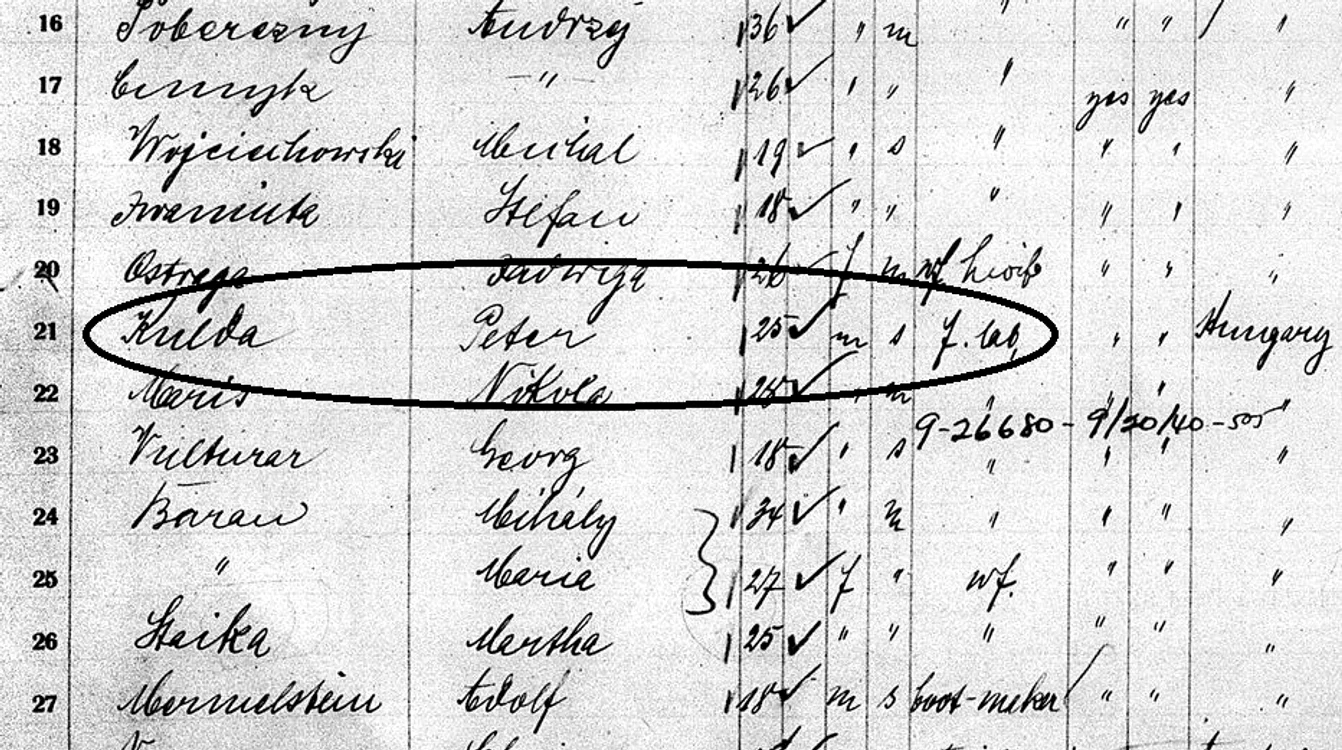 16 Poberezny Andrzej 36 ✓ " m " " " / "
17 " 26 ✓ " " " yes yes "
18 Wojciechowski Michal 19 ✓ " s " " " "
19 Iwaniuta Stefan 18 ✓ " " " " " "
20 Ostrega Jadwiga 26 ✓ f m wf " " "
21 Kulda Peter 25 ✓ m s f. lab " " Hungary
22 Maris Nikola 28 ✓ " m " " " "
9-26680 - 9/20/40 - 505
23 Vulturar Georg 18 ✓ " s " " "
24 Baran Mihály 34 ✓ " m " " " "
25 " Maria 27 ✓ f " wf. " " "
26 Staika Martha 25 ✓ " " " " " "
27 Mermelstein Adolf 18 ✓ m s boot-meker " " "